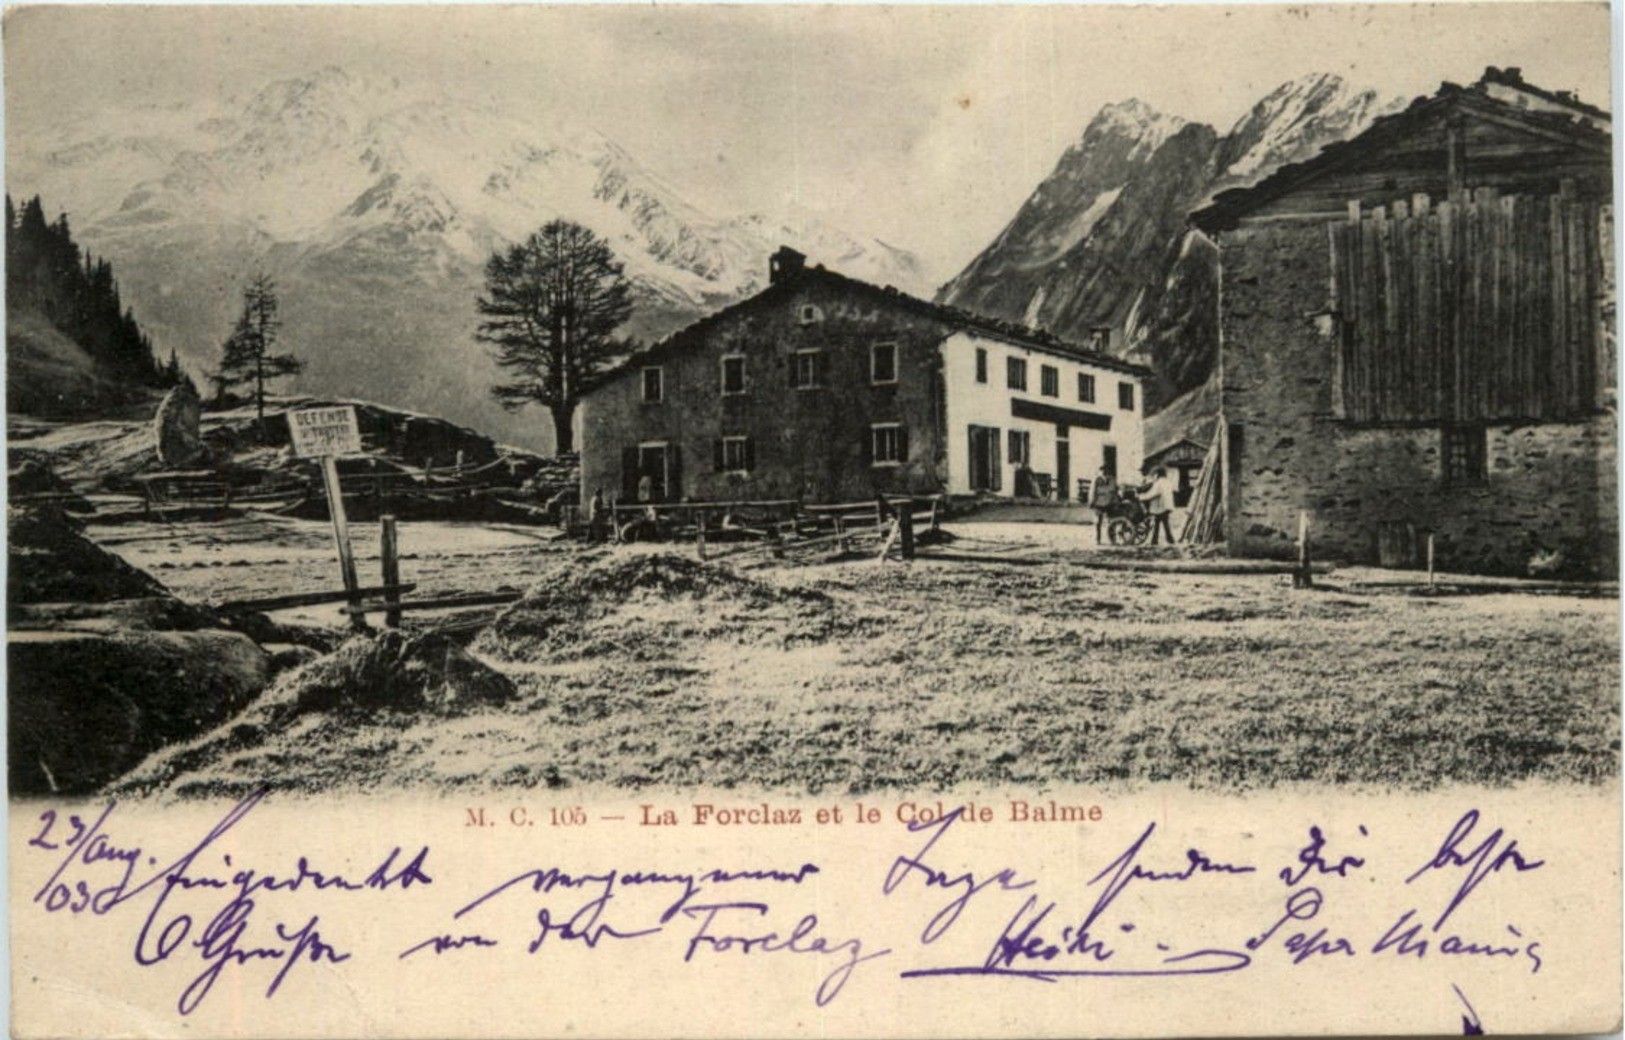 DEFENSE
M. C. 105 — La Forclaz et le Col de Balme
23/Aug.
03
Eingedenkk vergangener Tage senden Dir beste
Grüße von der Forclaz Heini - Papa Mama